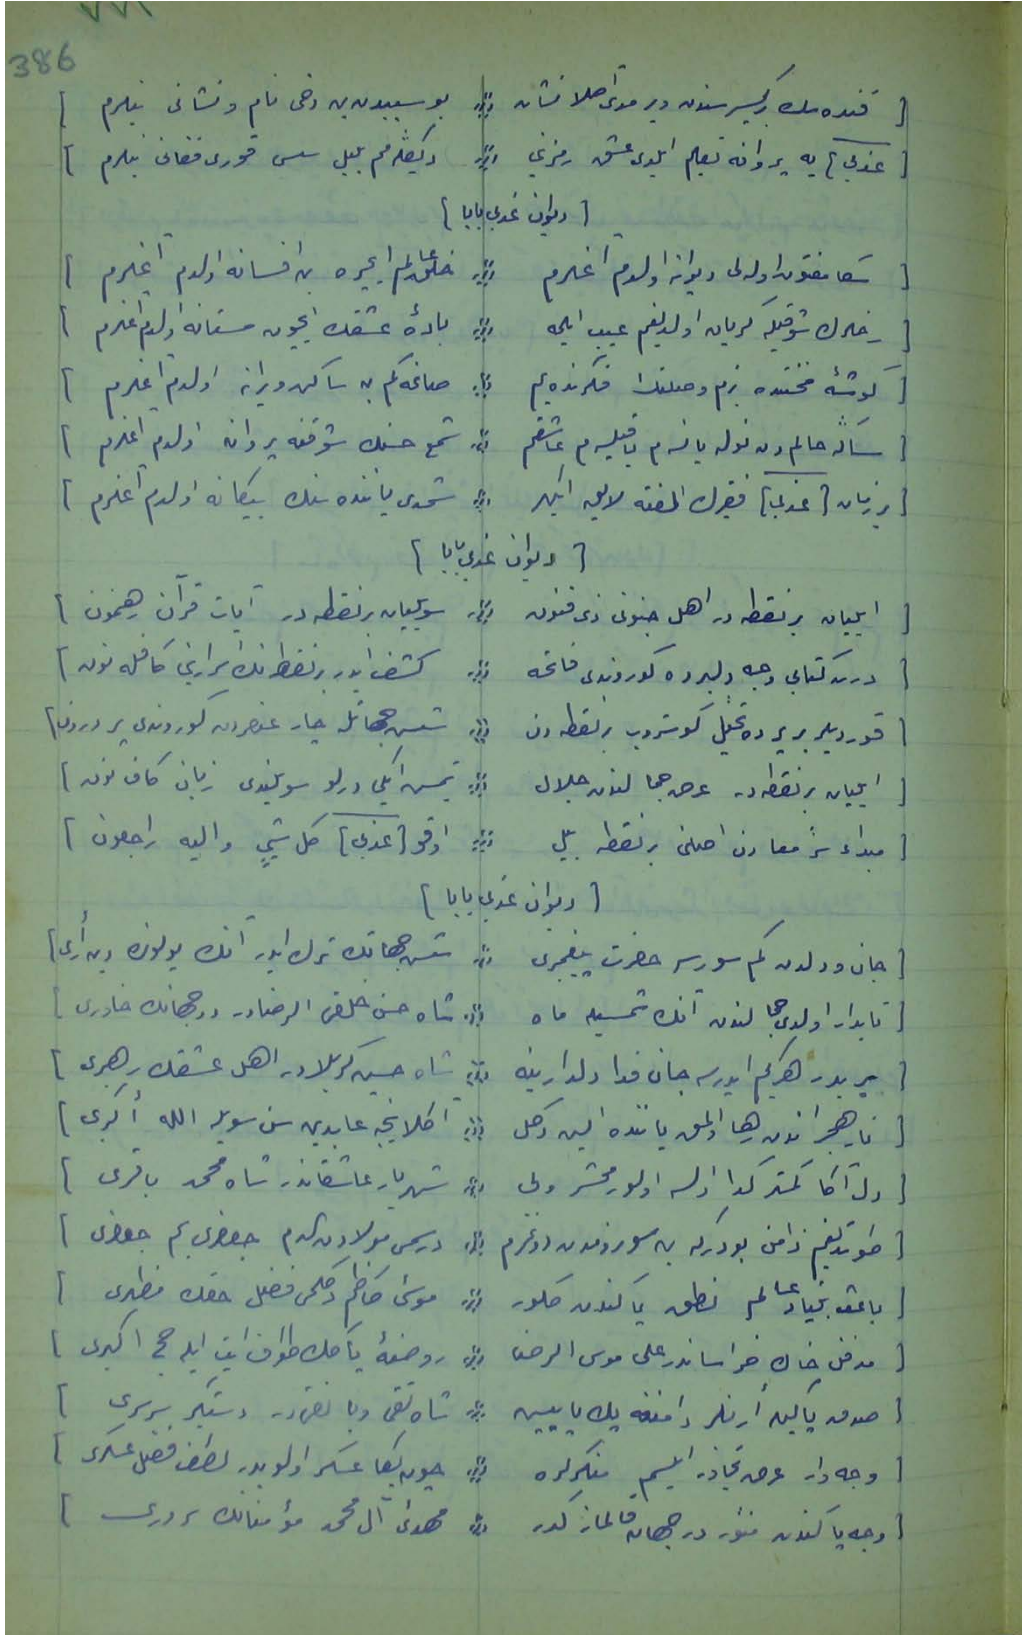 386
[ قنده سك بر کیسه سندن ویرمدی اصلا نشان ⁘ بو سببدن بن دخی نام و نشانی نیلرم ]
[ [عذبی] یه پروانه تعلیم ایلدی عشق رمزنی ⁘ دیکلمم بلبل سسی قوری فغانی نیلرم ]
[ دیوان عذبی بابا ]
[ سکا مفتون اوله لی دیوانه اولدم آغلرم ⁘ خلق عالم ایچره بن افسانه اولدم آغلرم ]
[ رخلرك شوقیله کریان اولدیغم عیب ایلمه ⁘ بادهٔ عشقك ایچون مستانه اولدم آغلرم ]
[ کوشهٔ محنتده بزم وصلتك فکرنده یم ⁘ صانمه کم بن ساکن ویرانه اولدم آغلرم ]
[ حالمدن نوله یانرم یاقیلرم عاشقم ⁘ شمع حسنك شوقنه پروانه اولدم آغلرم ]
[ بر زمان [عذبی] فقیرك الفته لایق ایکن ⁘ شمدی یاننده سنك بیکانه اولدم آغلرم ]
[ دیوان عذبی بابا ]
[ ایلیان بر نقطه در اهل جنونی ذی فنون ⁘ سویلیان بر نقطه در آیات قرآن رهنمون ]
[ درس کتابی وجه دلبرده کوروندی فاتحه ⁘ کشف ایدر بر نقطه نك اسرارینی کافله نون ]
[ قوردیلر بر پرده تخییل کوستروب بر نقطه دن ⁘ شش جهاتله چار عنصردن کوروندی بر درون ]
[ ایلیان بر نقطه در عرض جمالندن جلال ⁘ یتمش ایکی درلو سویلندی زبان کاف نون ]
[ مبداء معادن اصلنی بر نقطه بیل ⁘ اوقو [عذبی] کل شیءٍ والیه راجعون ]
[ دیوان عذبی بابا ]
[ جان و دلدن کم سورسه حضرت پیغمبری ⁘ شش جهاتك ترك ایدر آنك یولونه دین أری ]
[ تابدار اولدی جمالندن آنك شمسیله ماه ⁘ شاه حسن خلق الرضادر دو جهانك خاوری ]
[ پیر بدر هر کیم ایدرسه جان فدا دلدارینه ⁘ شاه حسین کربلادر اهل عشقك رهبری ]
[ نار هجراندن رها اولمق یاننده ایسی دکل ⁘ آکلاینجه عابدین سن سویله الله أکبری ]
[ دل آکا کمتر کدا اولسه اولور محشر ولی ⁘ شهریار عاشقاندر شاه محمد باقری ]
[ طوتدیغم دامن بودرکه بن سوزمدن دونمزم ⁘ درسمی مولادن آلدم جعفری یم جعفری ]
[ باعث بنیاد عالم نطق پاکندن کلور ⁘ موسیٔ کاظم فضل حقك مظهری ]
[ مدفن خاك خراساندر علی موسی الرضا ⁘ روضهٔ پاکك طواف ایت ایله حج اکبری ]
[ صدق پاکیله أرنلر دامننه پك یاپیش ⁘ شاه تقی وبا نقی در دستکیر بر سری ]
[ وجه وار عرض نجاذر ایلسم منکرلره ⁘ چون بکا عسکر اولوبدر لطف فضل عسکری ]
[ وجه پاکندن منور در جهان قالماز کدر ⁘ مهدیٔ آل محمد مؤمنانك سروری ]